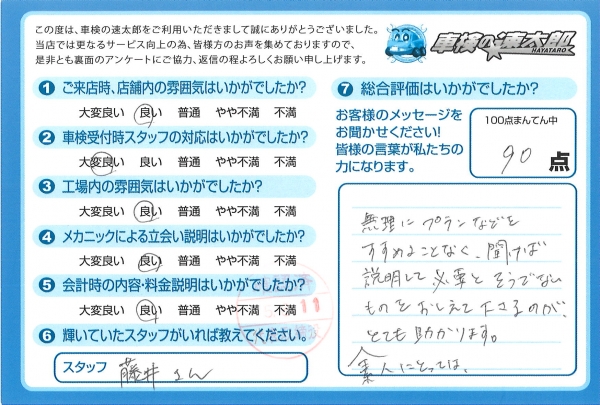 この度は、車検の速太郎をご利用いただきまして誠にありがとうございました。
当店では更なるサービス向上の為、皆様方のお声を集めておりますので、
是非とも裏面のアンケートにご協力、返信の程よろしくお願い申し上げます。
車検の速太郎
HAYATARO
1 ご来店時、店舗内の雰囲気はいかがでしたか?
大変良い 良い 普通 やや不満 不満
2 車検受付時スタッフの対応はいかがでしたか?
大変良い 良い 普通 やや不満 不満
3 工場内の雰囲気はいかがでしたか?
大変良い 良い 普通 やや不満 不満
4 メカニックによる立会い説明はいかがでしたか?
大変良い 良い 普通 やや不満 不満
5 会計時の内容・料金説明はいかがでしたか?
大変良い 良い 普通 やや不満 不満
6 輝いていたスタッフがいれば教えてください。
スタッフ 藤井さん
11
7 総合評価はいかがでしたか?
お客様のメッセージを
お聞かせください!
皆様の言葉が私たちの
力になります。
100点まんてん中
90 点
無理にプランなどを
すすめることなく、聞けば
説明して必要とそうでない
ものをおしえて下さるのが、
とても助かります。
素人にとっては、